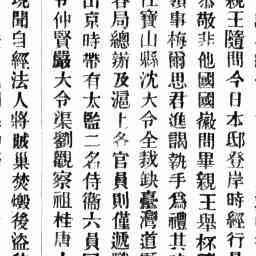 親王隨間今日本邸登岸時經行
恭敬非他國國徽間畢親王舉杯
領事梅爾思君進謁執手為禮其
任寶山縣沈大令全裁缺臺灣道
容局總辦及滬上各官員則僅遞
出京時帶有太監二名侍衛六員
令仲賢嚴大令渠劉觀察祖桂唐
現聞自經法人將賊巢焚燬後盜